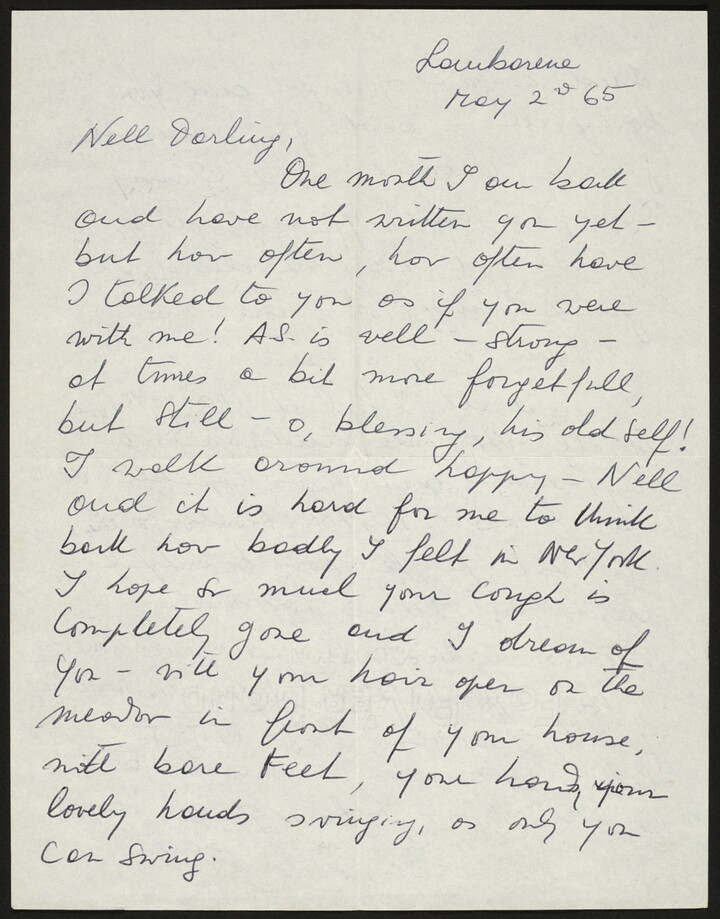 Lambarene
May 2d 65
Nell Darling,
One month I am back
and have not written you yet -
but how often, how often have
I talked to you as if you were
with me! A.S. is well - strong -
at times a bit more forgetfull,
but still - o, blessing, his old self!
I walk around happy - Nell
and it is hard for me to think
back how badly I felt in New York.
I hope so much your cough is
completely gone and I dream of
you - with your hair open on the
meadow in front of your house,
with bare feet, your hand, your
lovely hands swinging, as only you
can swing.